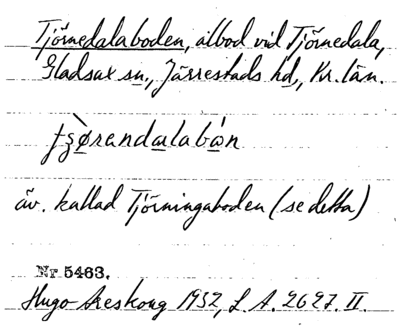 Tjörnedalaboden, ålbod vid Tjörnedala,
Gladsax sn., Järrestads hd., Kr. län.
äv. kallad Tjörningaboden (se detta)
Nr 5463.
Hugo Areskoug 1932, L. A. 2627. II.